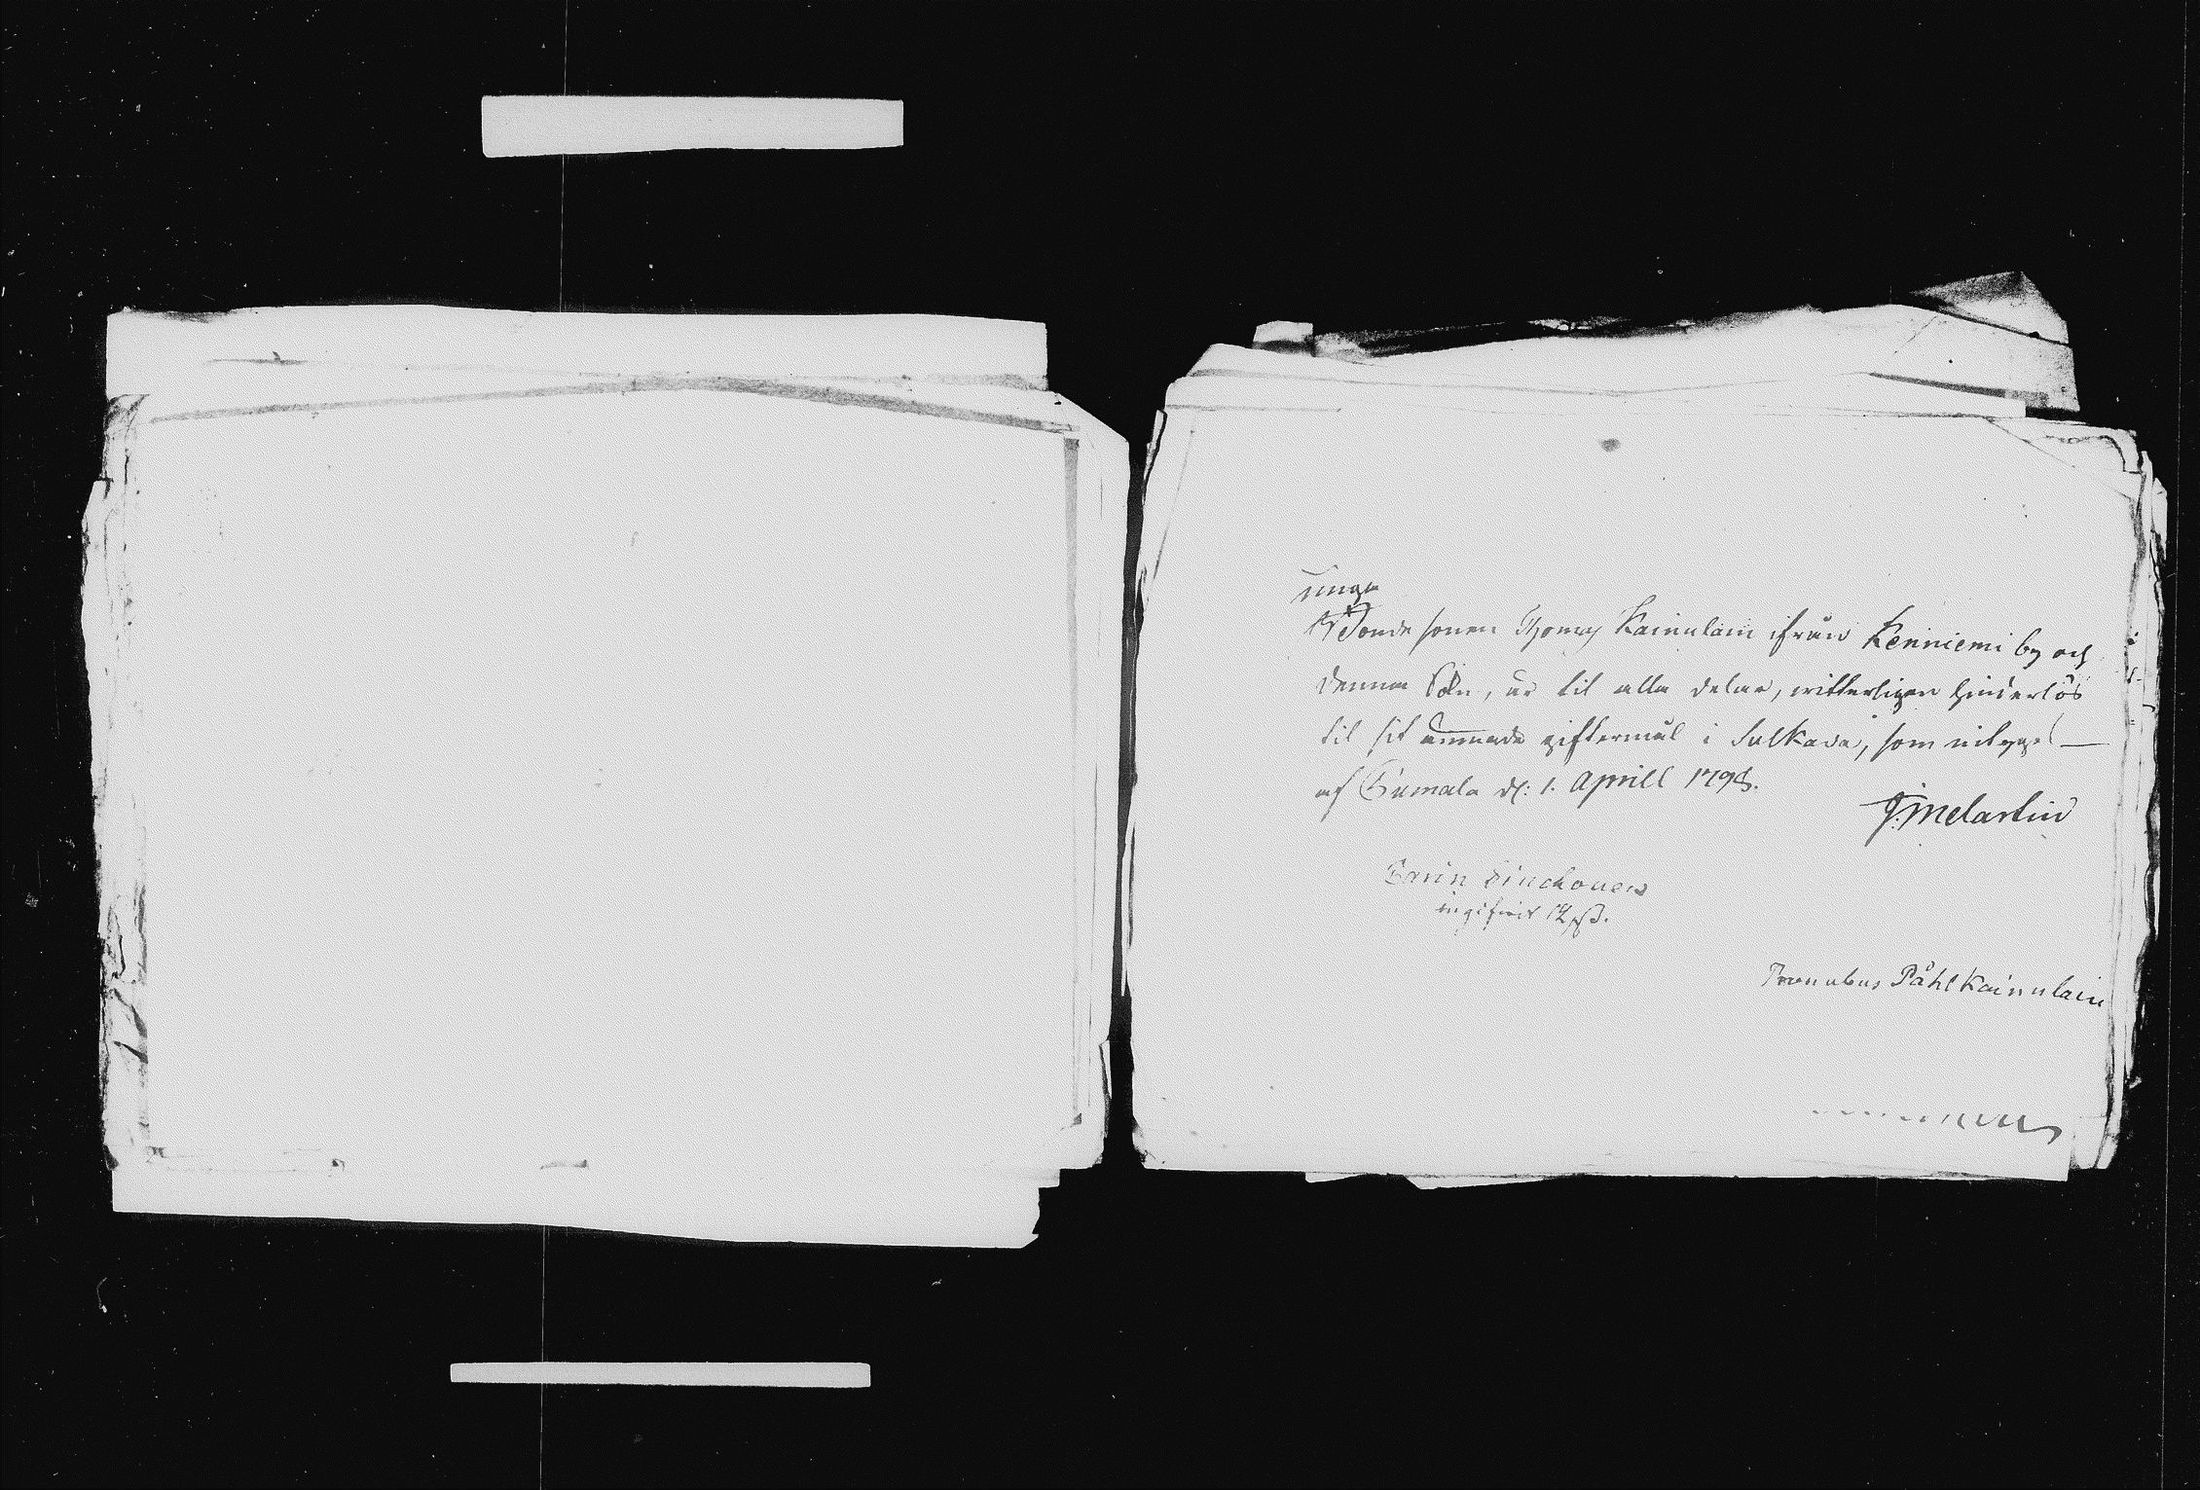 unga
Bonde sonen Thomas Kainulain ifrån Kenniemi by och
denna Sokn, är til alla delar, witterligen hinderlös
til sit ämnade giftermål i Sulkava, som intygas
af Sumala d: 1. Aprill 1798.
J: Melartin
Carin Sinckonen
ingifwit 12 ß.
Pronubus Påhl Kainulain